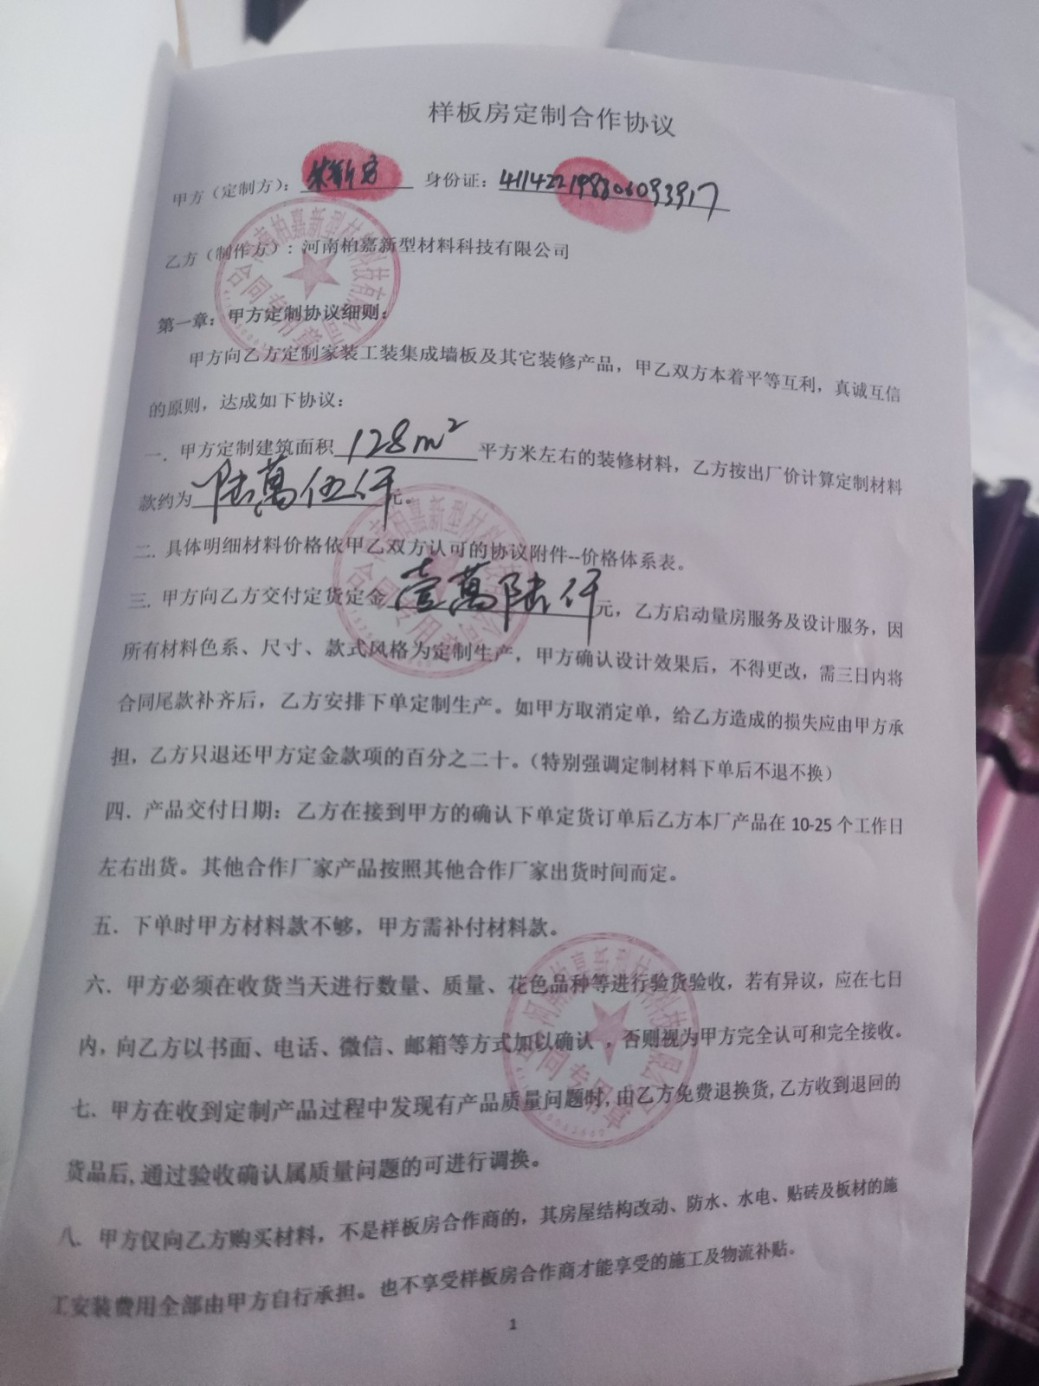 样板房定制合作协议
甲方（定制方）： 身份证：
乙方（制作方）：河南柏嘉新型材料科技有限公司
第一章：甲方定制协议细则：
甲方向乙方定制家装工装集成墙板及其它装修产品，甲乙双方本着平等互利，真诚互信
的原则，达成如下协议：
一．甲方定制建筑面积 128m² 平方米左右的装修材料，乙方按出厂价计算定制材料
款约为 陆萬伍仟 元。
二．具体明细材料价格依甲乙双方认可的协议附件--价格体系表。
三．甲方向乙方交付定货定金 壹萬陆仟 元，乙方启动量房服务及设计服务，因
所有材料色系、尺寸、款式风格为定制生产，甲方确认设计效果后，不得更改，需三日内将
合同尾款补齐后，乙方安排下单定制生产。如甲方取消定单，给乙方造成的损失应由甲方承
担，乙方只退还甲方定金款项的百分之二十。（特别强调定制材料下单后不退不换）
四．产品交付日期：乙方在接到甲方的确认下单定货订单后乙方本厂产品在 10-25 个工作日
左右出货。其他合作厂家产品按照其他合作厂家出货时间而定。
五．下单时甲方材料款不够，甲方需补付材料款。
六．甲方必须在收货当天进行数量、质量、花色品种等进行验货验收，若有异议，应在七日
内，向乙方以书面、电话、微信、邮箱等方式加以确认，否则视为甲方完全认可和完全接收。
七．甲方在收到定制产品过程中发现有产品质量问题时,由乙方免费退换货,乙方收到退回的
货品后,通过验收确认属质量问题的可进行调换。
八．甲方仅向乙方购买材料，不是样板房合作商的，其房屋结构改动、防水、水电、贴砖及板材的施
工安装费用全部由甲方自行承担。也不享受样板房合作商才能享受的施工及物流补贴。
1